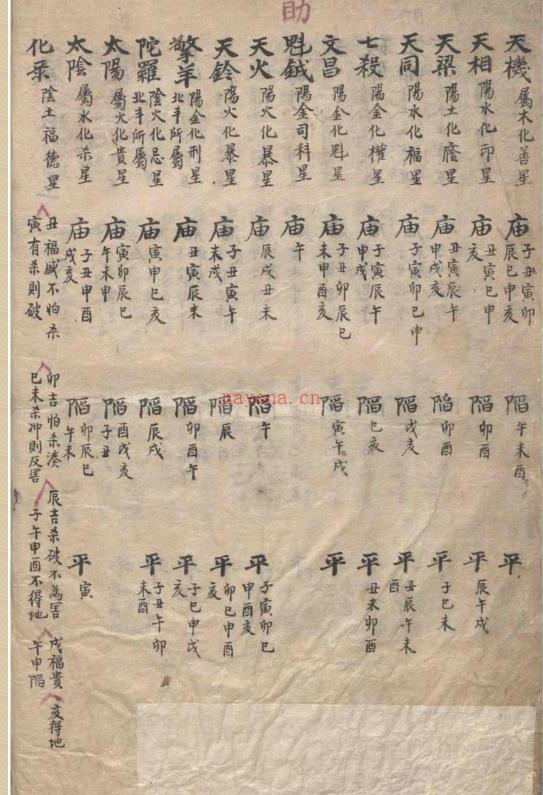 助
天機 屬木化善星 庙 子丑寅卯辰巳申亥 陷 午未酉 平
天相 陽水化印星 庙 丑寅巳申亥 陷 卯酉 平 辰午戌
天梁 陽土化廕星 庙 丑寅辰午申戌亥 陷 卯酉 平 子巳未
天同 陽水化福星 庙 子卯巳申 陷 戌亥 平 丑辰午未酉
七殺 陽金化權星 庙 子寅辰午申戌 陷 巳亥 平 丑未卯酉
文昌 陽金化魁星 庙 子丑卯辰巳未申酉亥 陷 寅午戌 平
魁鉞 陽金司科星 庙 午
天火 陽火化暴星 庙 辰戌丑未 陷 午 平 子寅卯巳申酉亥
天鈴 陽火化暴星 庙 子丑寅午未戌 陷 辰 平 卯巳申酉亥
擎羊 陽金化刑星北斗所屬 庙 丑寅辰未 陷 卯酉午 平 子巳申戌亥
陀羅 陰火化忌星北斗所屬 庙 寅申巳亥 陷 辰戌 平 子丑午卯未酉
太陽 屬火化貴星 庙 寅卯辰巳午未申 陷 酉戌亥子丑
太陰 屬水化杀星 庙 子丑申酉戌亥 陷 卯辰巳午未 平 寅
化录 陰土福德星 丑福咸不怕杀 寅有杀則破 卯吉怕杀湊 巳未杀冲則反害 辰吉杀破不為害 子午申酉不得地 戌福貴 午申陷 亥得地
nayona.cn